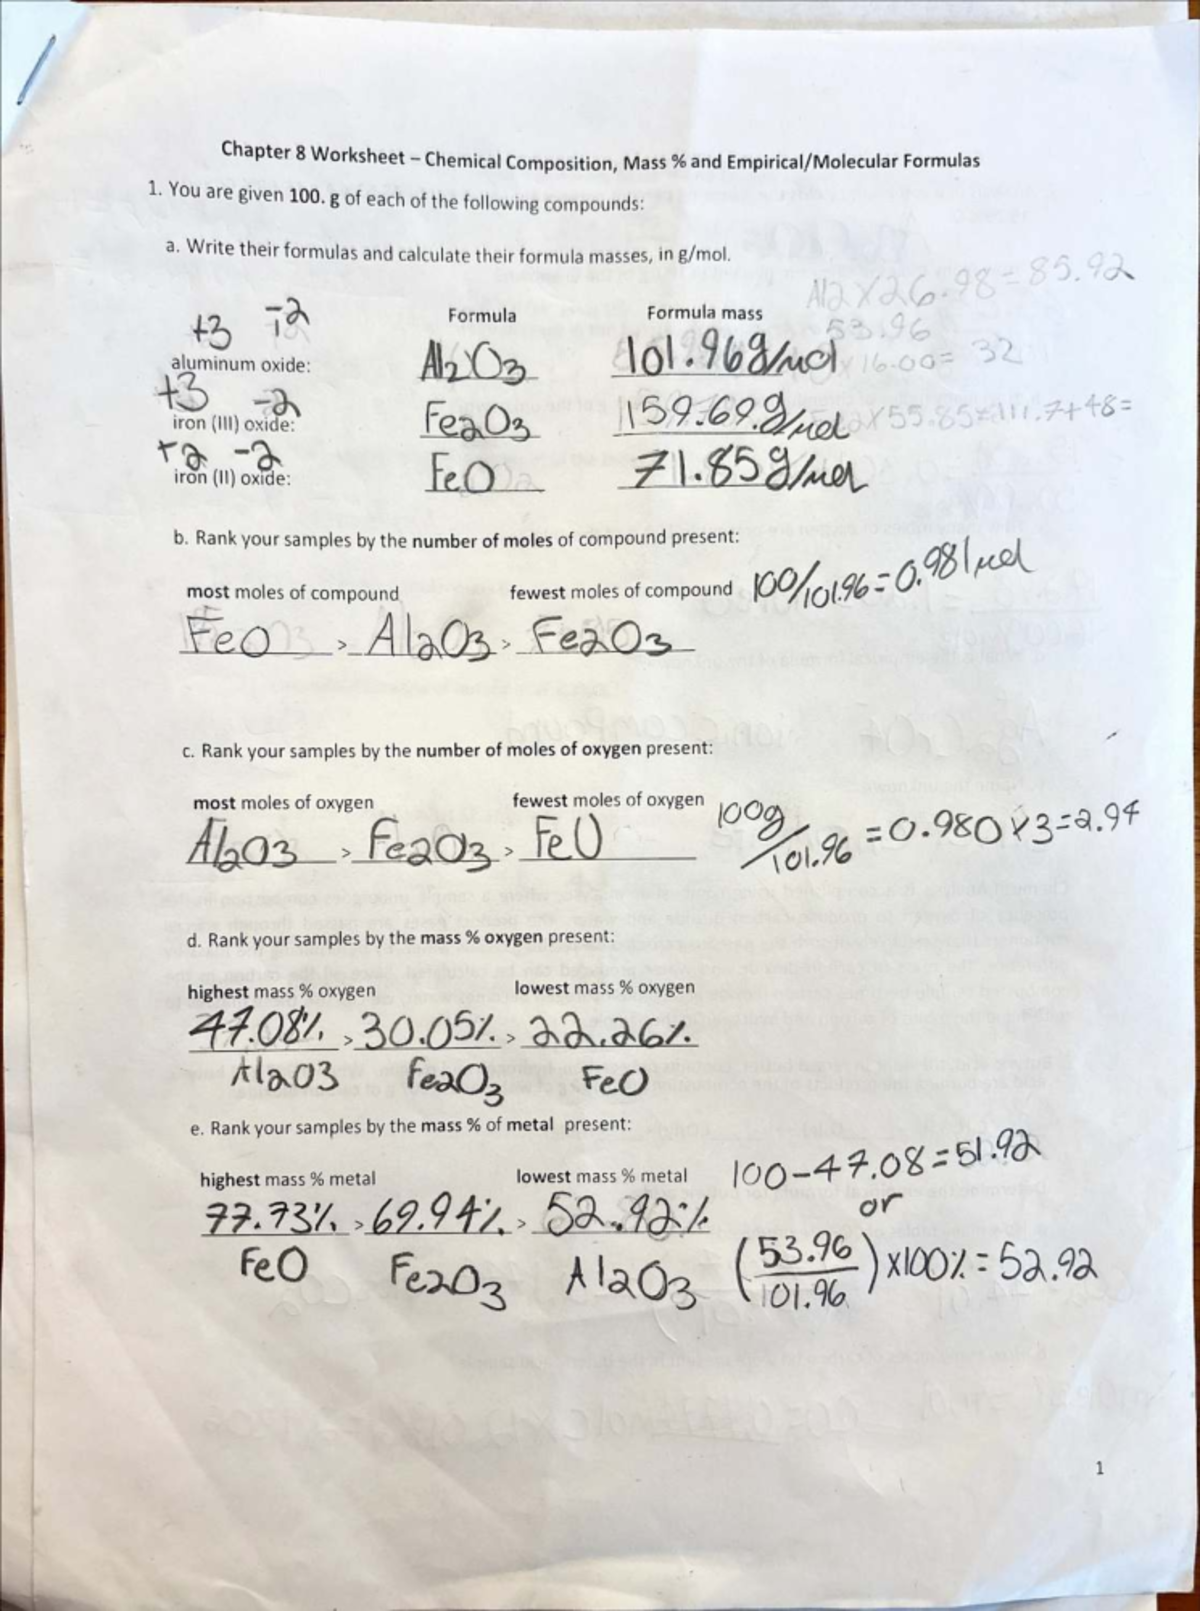 Chapter 8 Worksheet – Chemical Composition, Mass % and Empirical/Molecular Formulas
1. You are given 100. g of each of the following compounds:
a. Write their formulas and calculate their formula masses, in g/mol.
Al2 x 26.98 = 85.92
+3 -2 Formula Formula mass 53.96
aluminum oxide: Al2O3 101.96g/mol x 16.00 = 32
+3 -2
iron (III) oxide: Fe2O3 159.69g/mol 2 x 55.85 = 111.7+48=
+2 -2
iron (II) oxide: FeO 71.85g/mol
b. Rank your samples by the number of moles of compound present:
most moles of compound fewest moles of compound 100/101.96 = 0.981 mol
FeO > Al2O3 > Fe2O3
c. Rank your samples by the number of moles of oxygen present:
most moles of oxygen fewest moles of oxygen 100g/101.96 = 0.980 x 3 = 2.94
Al2O3 > Fe2O3 > FeO
d. Rank your samples by the mass % oxygen present:
highest mass % oxygen lowest mass % oxygen
47.08% > 30.05% > 22.26%
Al2O3 Fe2O3 FeO
e. Rank your samples by the mass % of metal present:
highest mass % metal lowest mass % metal 100-47.08=51.92
77.73% > 69.94% > 52.92% or
FeO Fe2O3 Al2O3 (53.96/101.96) x100% = 52.92
1